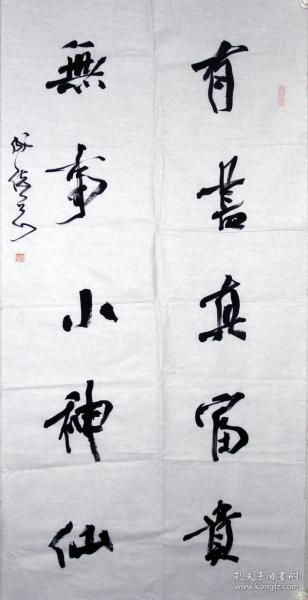 有書真富貴
無事小神仙
孔夫子旧书网
www.kongfz.com